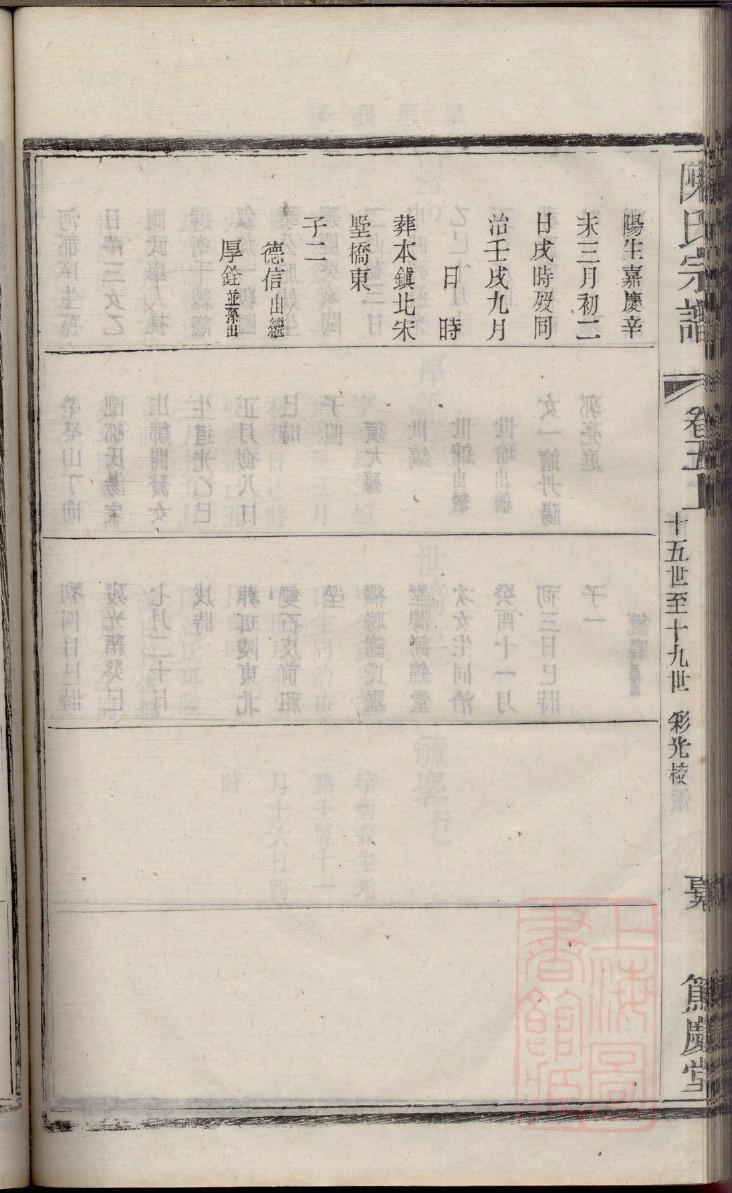 陳氏宗譜
卷五上
十五世至十九世 彩光校
篤慶堂
陽生嘉慶辛
未三月初二
日戌時歿同
治壬戌九月
日 時
葬本鎮北宋
墅橋東
子二
德信出繼
厚銓並梁出
上海圖書館藏